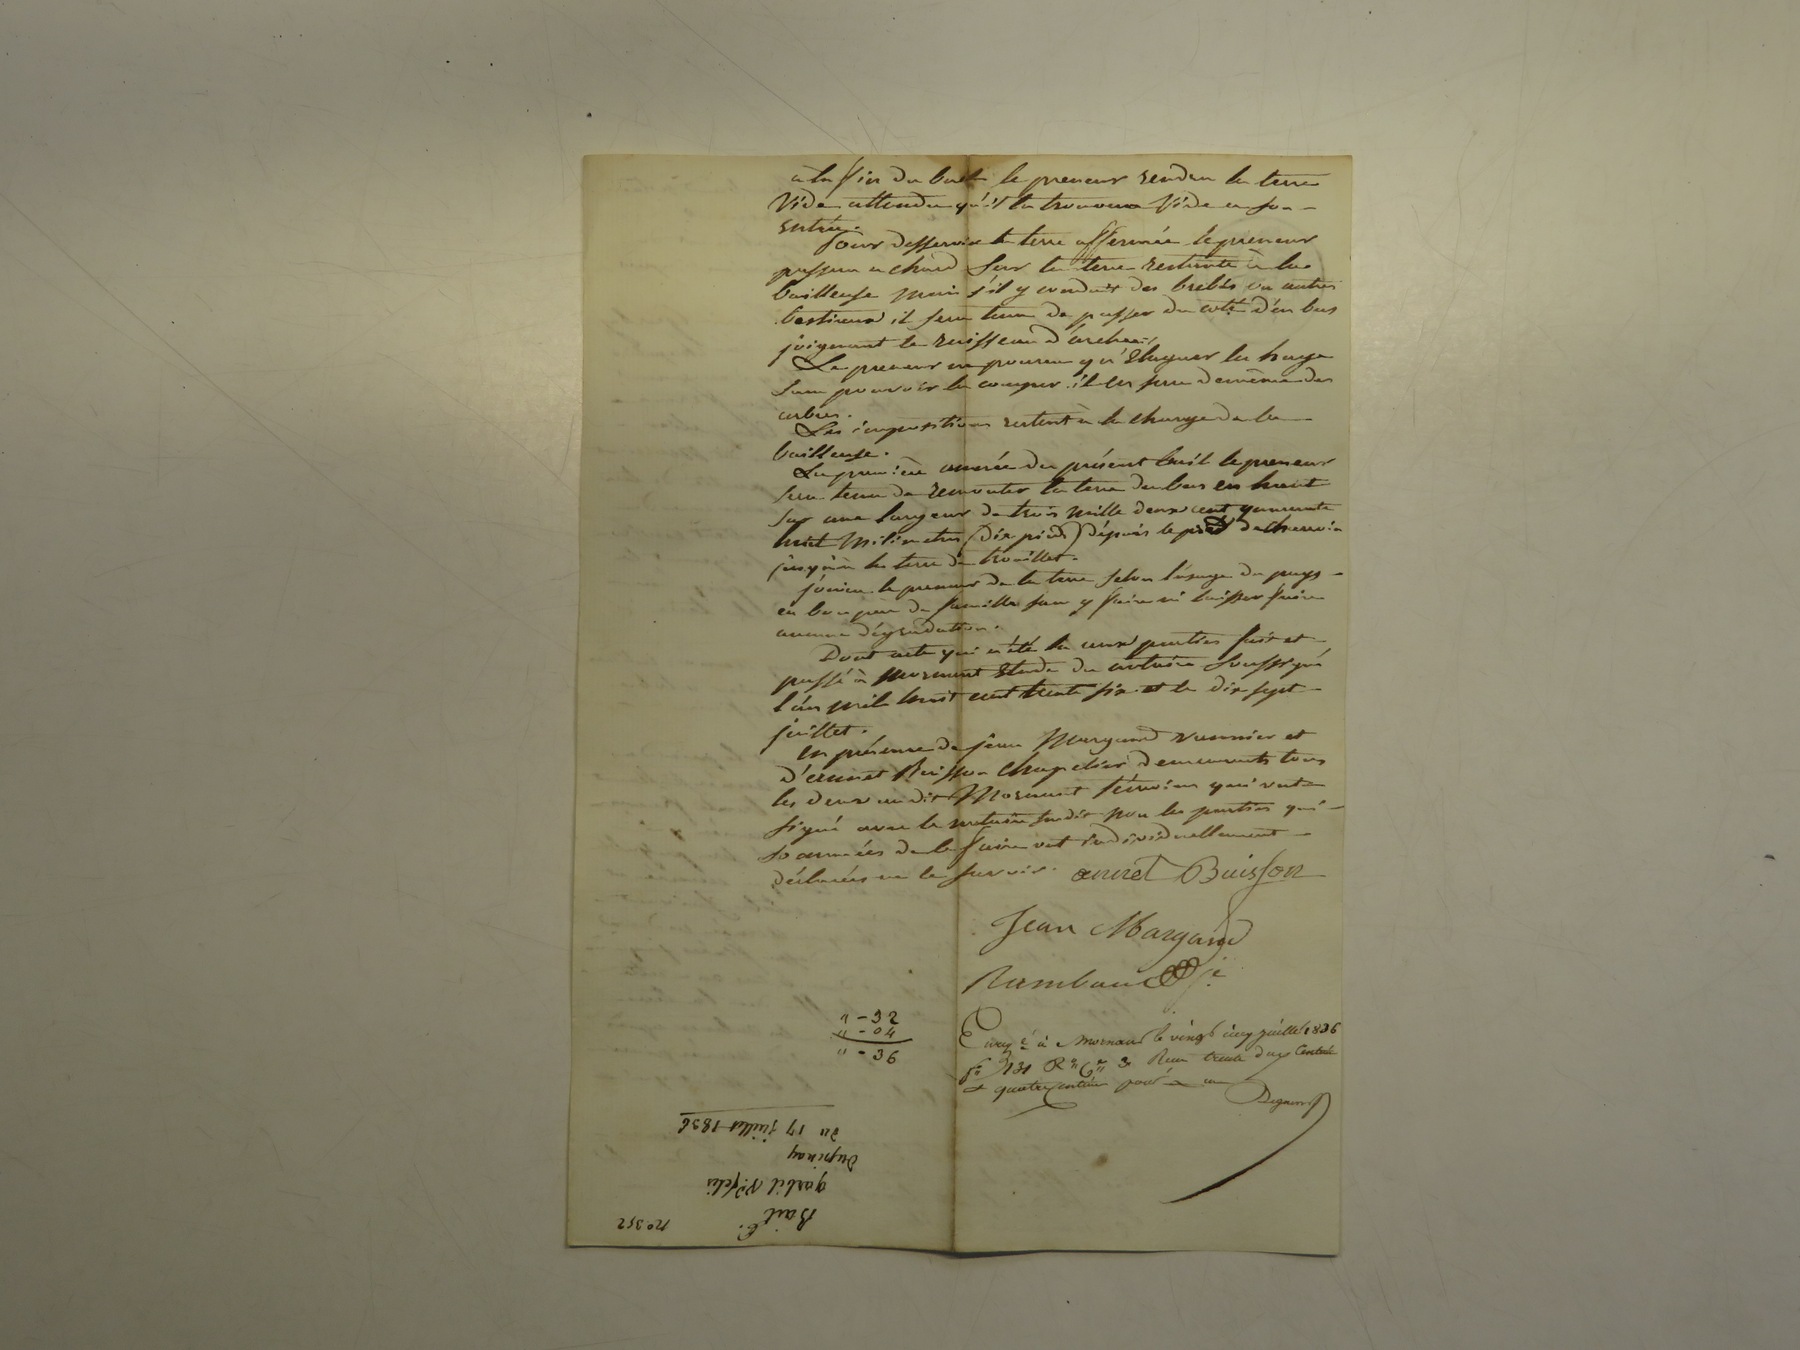 à la fin du bail le preneur rendra la terre
Vide attendu qu'il la trouvera Vide a son
entrée.
Pour desservir la terre affermée le preneur
passera a chard sur la terre restante à la
bailleuse mais s'il y conduit des brebis ou autres
bestiaux il sera tenu de passer du coté d'en bas
joignant le ruisseau d'archea
Le preneur ne pourra qu'élaguer la haye
sans pouvoir la couper. il en sera de même des
arbres.
Les impositions restent à la charge de la
bailleuse.
La première année du présent bail le preneur
sera tenu de remonter la terre du bas en haut
sur une largeur de trois mille deux cent quarante
huit milimetres (dix pieds) dépuis le pied de
jusqu'à la terre de trouillet.
jouira le preneur de la terre selon l'usage du pays
en bon père de famille sans y faire ni laisser faire
aucune dégradation.
Dont acte qui a été lu aux parties fait et
passé à Mornant Etude du notaire soussigné
l'an mil huit cent trente six et le dix sept
juillet.
En présence de jean Margand vannier et
d'annet Buisson chapelier demeurants tous
les deux au dit Mornant témoins qui ont
signé avec le notaire susdit non les parties qui
sommées de le faire ont individuellement
déclarées ne le savoir. annet Buisson
Jean Margand
Rambaud
" - 32
" - 04
" - 36
Enreg é à Mornant le vingt cinq juillet 1836
fo 131 Ro Ce 3 Reçu trente deux centimes
& quatre centimes pour
No 352
Bail
du 17 juillet 1836